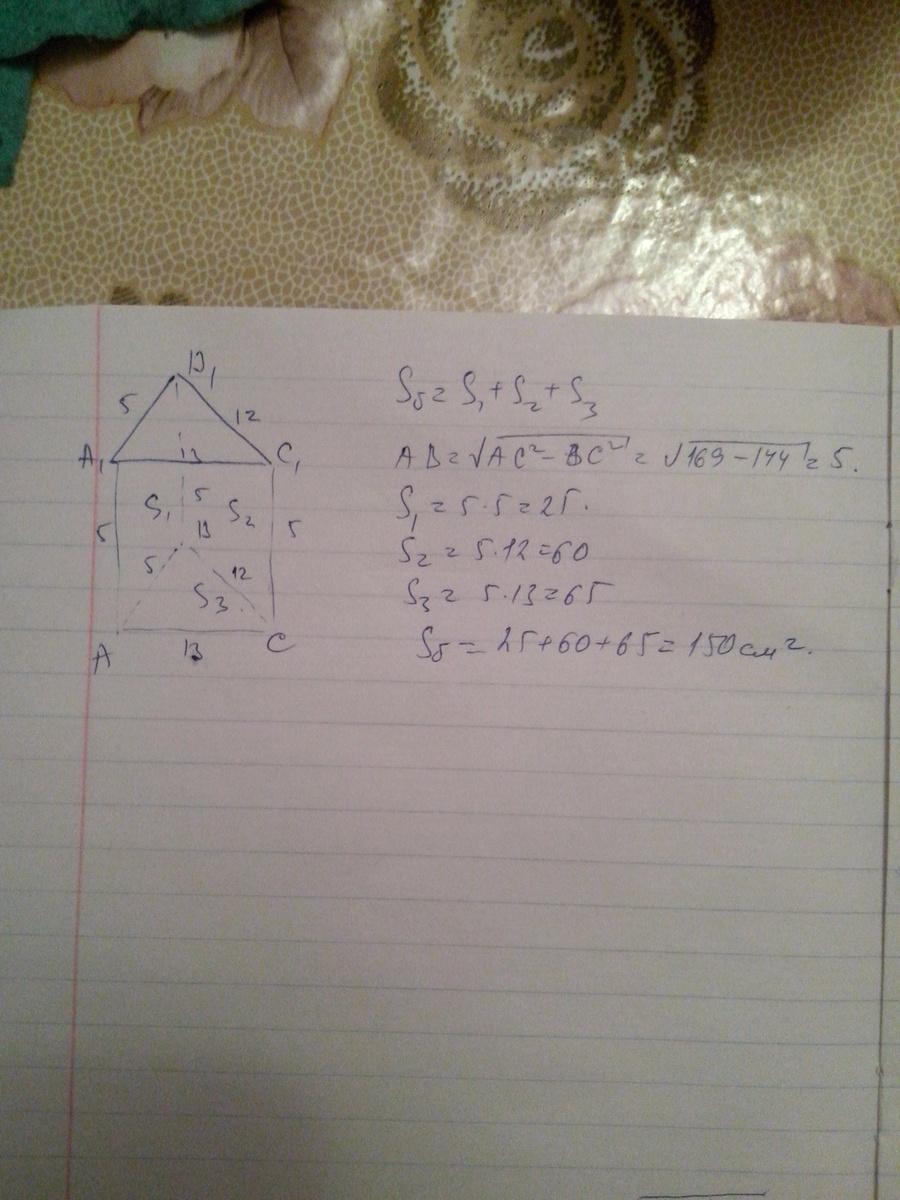 B₁
5
12
A₁
13
C₁
S₁
5
S₂
5
B
5
5
12
S₃
A
13
C
Sб = S₁ + S₂ + S₃
AB = √AC² - BC² = √169 - 144 = 5.
S₁ = 5·5 = 25.
S₂ = 5·12 = 60
S₃ = 5·13 = 65
Sб = 25+60+65 = 150 см².